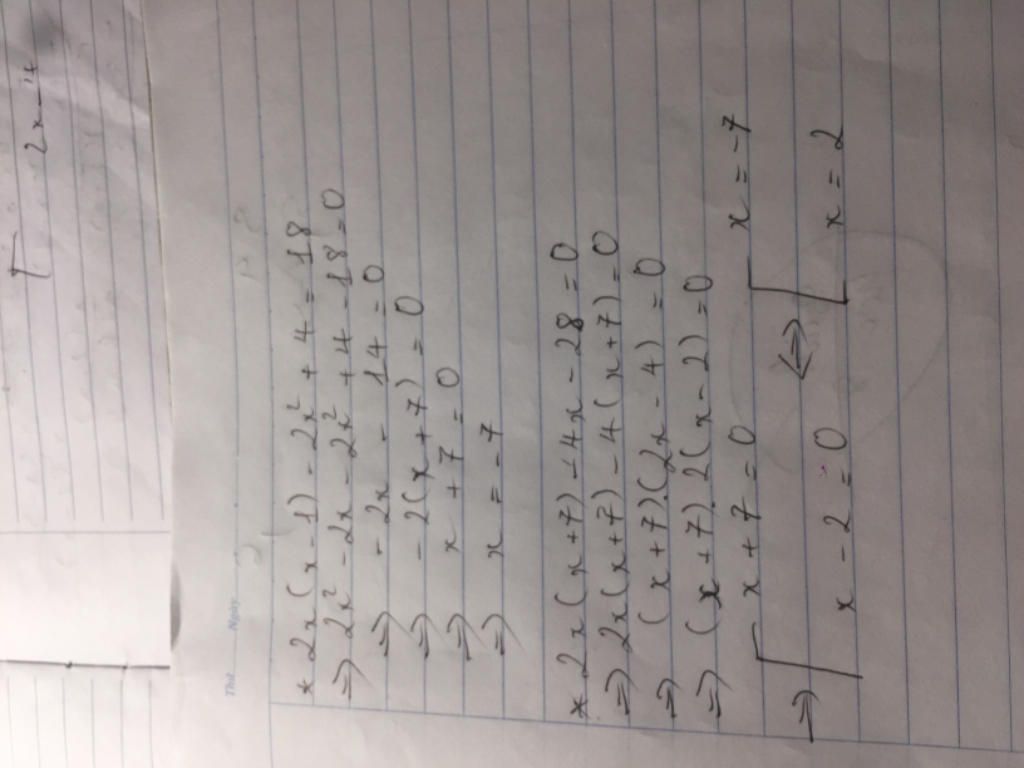 Thứ Ngày
* 2x(x-1) - 2x² + 4 = 18
⇒ 2x² - 2x - 2x² + 4 - 18 = 0
⇒ - 2x - 14 = 0
⇒ - 2(x+7) = 0
⇒ x + 7 = 0
⇒ x = -7
* 2x(x+7) - 4x - 28 = 0
⇒ 2x(x+7) - 4(x+7) = 0
⇒ (x+7).(2x-4) = 0
⇒ (x+7).2(x-2) = 0
⇒ [ x + 7 = 0 ⇔ [ x = -7
x - 2 = 0 x = 2